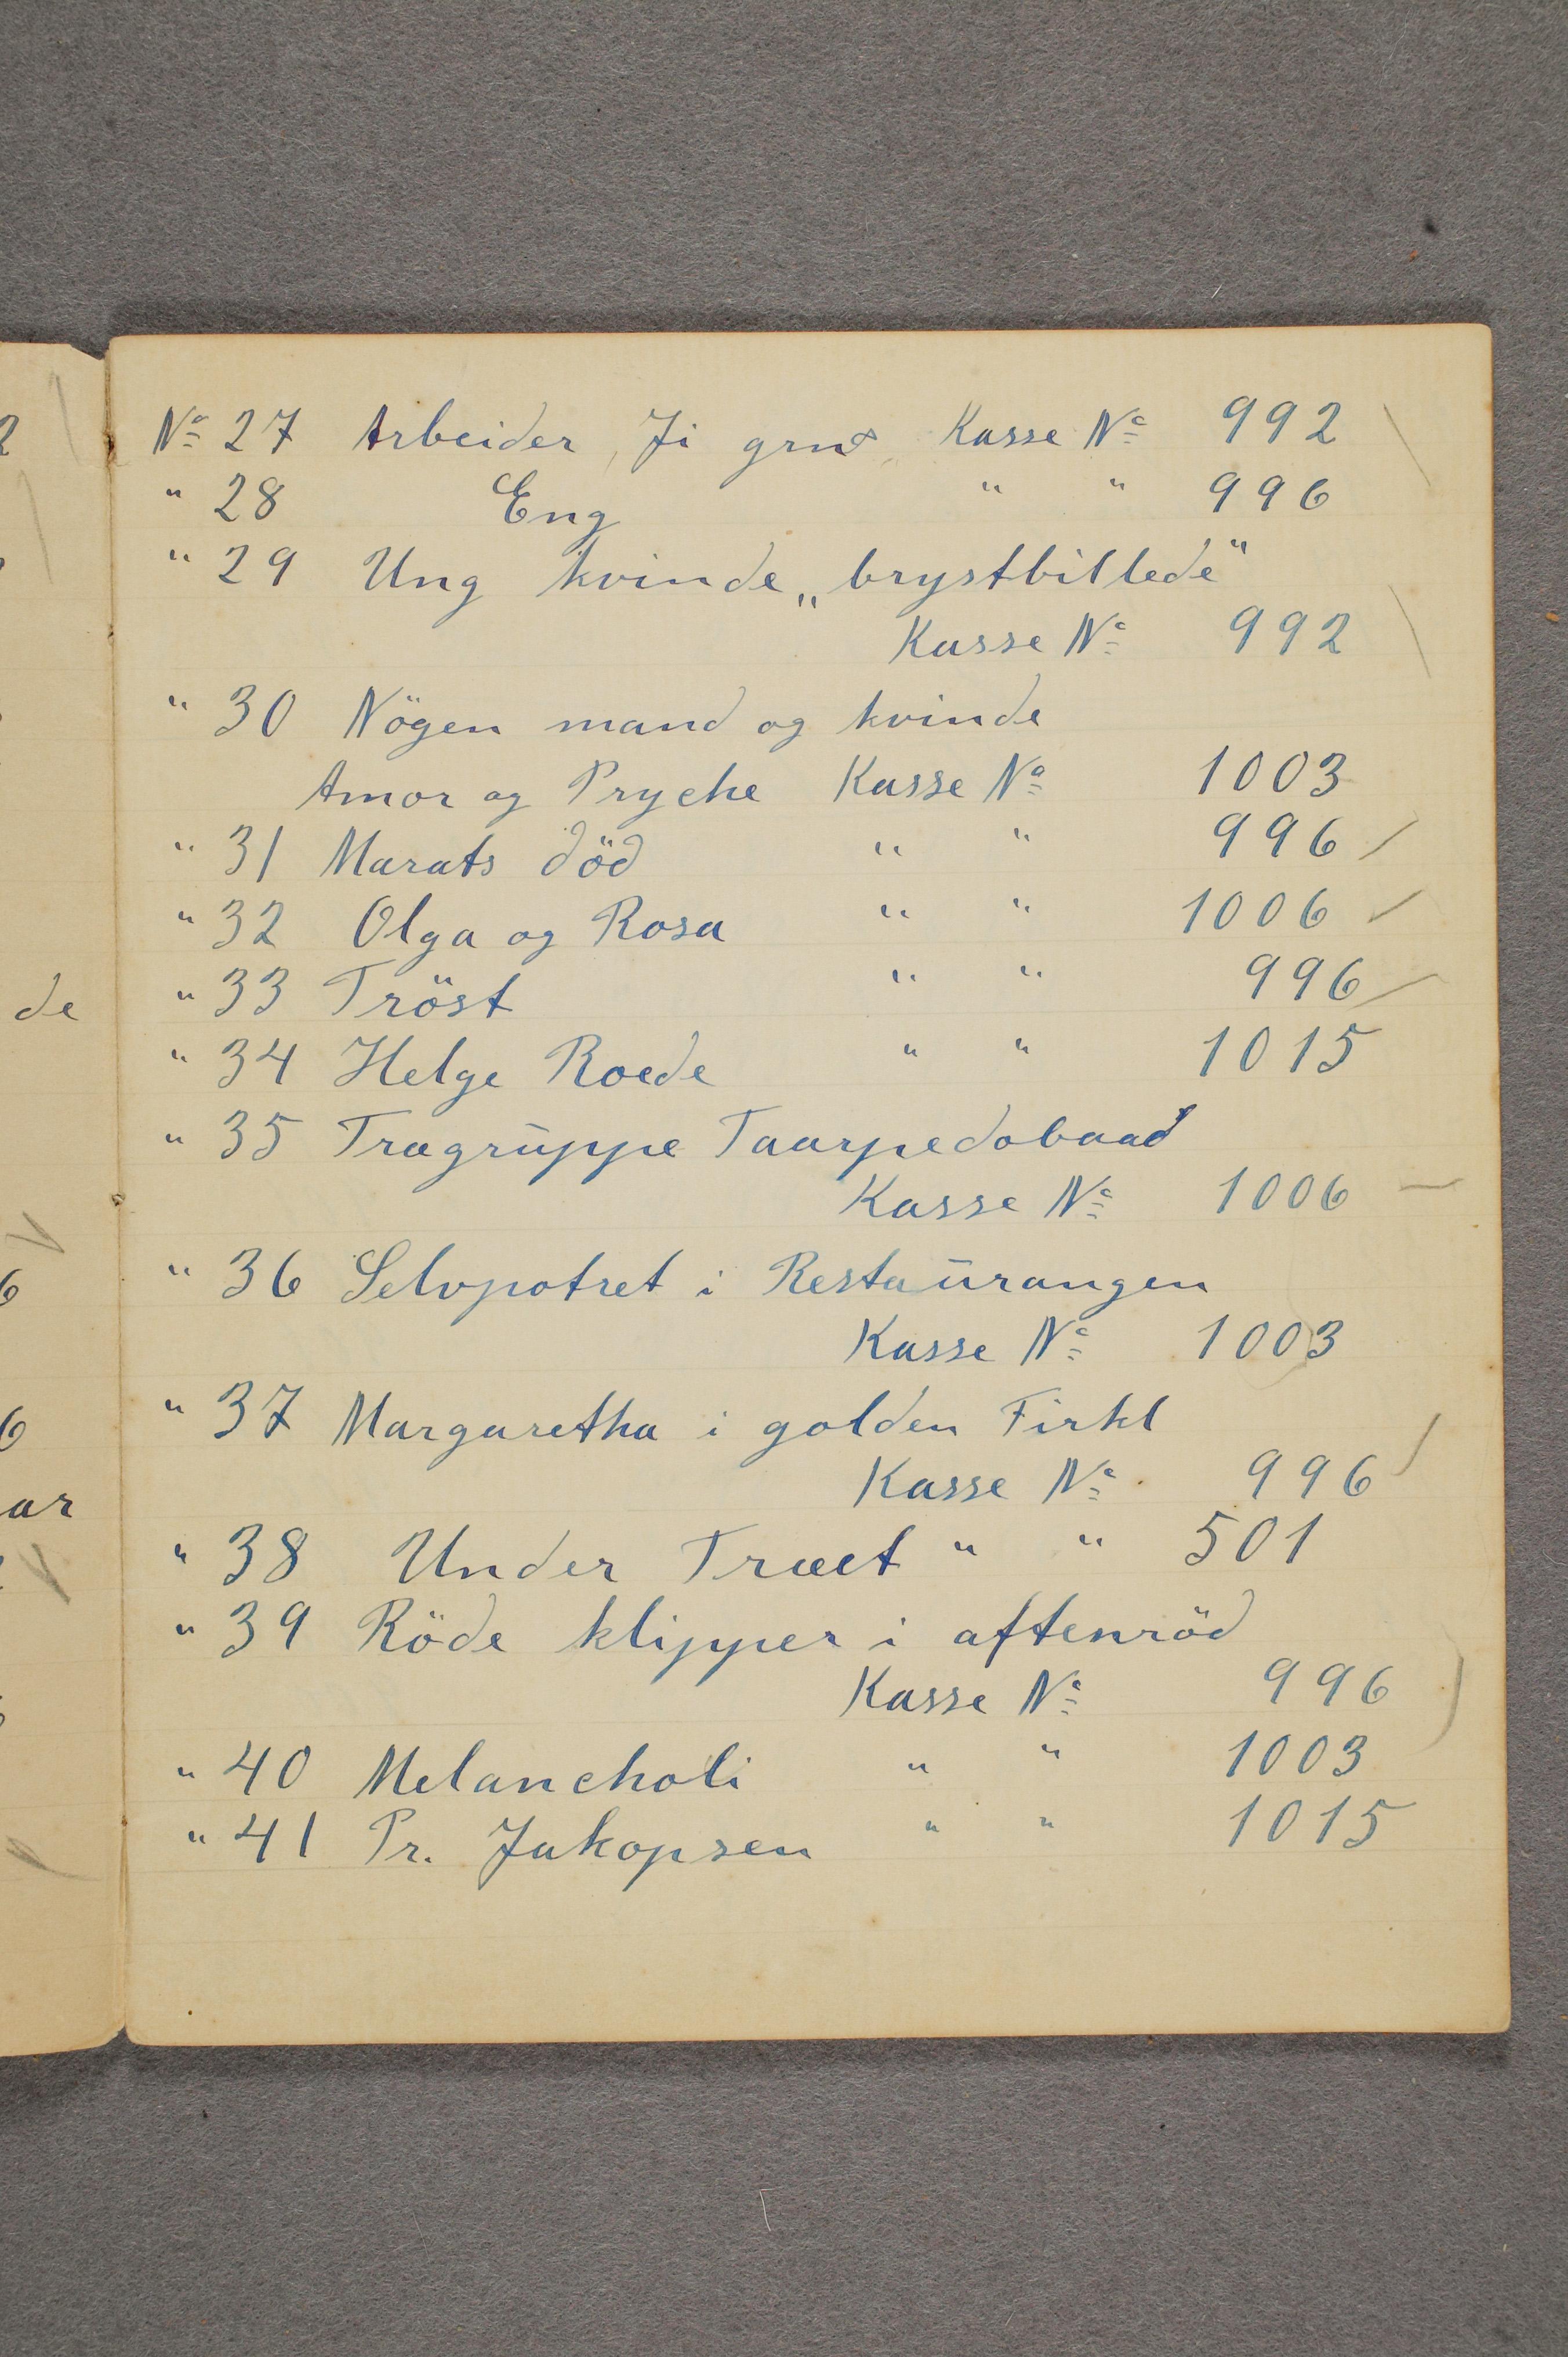 Nº 27 Arbeider, Ji grnt Kasse Nº 992
" 28 Eng " " 996
" 29 Ung kvinde „brystbillede"
Kasse Nº 992
" 30 Nögen mand og kvinde
Amor og Pryche Kasse Nº 1003
" 31 Marats död " " 996
" 32 Olga og Rosa " " 1006
" 33 Tröst " " 996
" 34 Helge Roede " " 1015
" 35 Trægruppe Taarpedobaad
Kasse Nº 1006
" 36 Selvpotret i Restaurangen
Kasse Nº 1003
" 37 Margaretha i golden Firkl
Kasse Nº 996
" 38 Under Træet " " 501
" 39 Röde klipper i aftenröd
Kasse Nº 996
" 40 Melancholi " " 1003
" 41 Pr. Jakopsen " " 1015